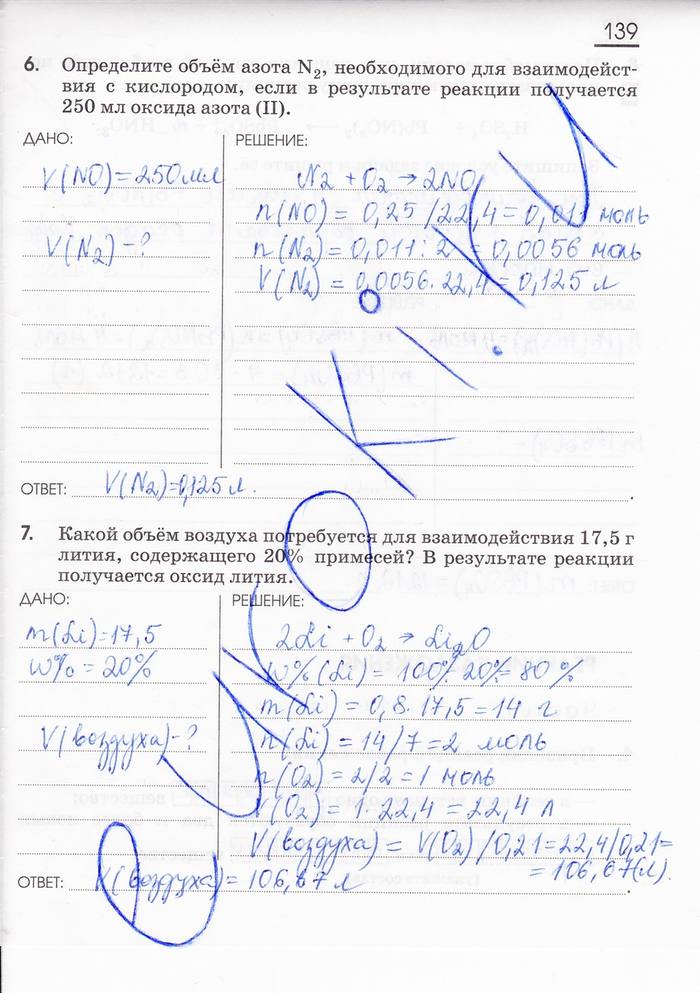 139
6. Определите объём азота N₂, необходимого для взаимодейст-
вия с кислородом, если в результате реакции получается
250 мл оксида азота (II).
ДАНО:
V(NO)=250мл
V(N₂)-?
РЕШЕНИЕ:
N₂ + O₂ → 2NO
n(NO) = 0,25 /22,4 = 0,011 моль
n(N₂) = 0,011 : 2 = 0,0056 моль
V(N₂) = 0,0056 · 22,4 = 0,125 л
ОТВЕТ: V(N₂)=0,125 л.
7. Какой объём воздуха потребуется для взаимодействия 17,5 г
лития, содержащего 20% примесей? В результате реакции
получается оксид лития.
ДАНО:
m(Li)=17,5
W% = 20%
V(воздуха)-?
РЕШЕНИЕ:
2Li + O₂ → Li₂O
W%(Li) = 100%-20%= 80 %
m(Li) = 0,8 · 17,5 = 14 г
n(Li) = 14/7 = 2 моль
n(O₂) = 2/2 = 1 моль
V(O₂) = 1 · 22,4 = 22,4 л
V(воздуха) = V(O₂) /0,21=22,4/0,21=
= 106,67(л).
ОТВЕТ: V(воздуха)= 106,67 л